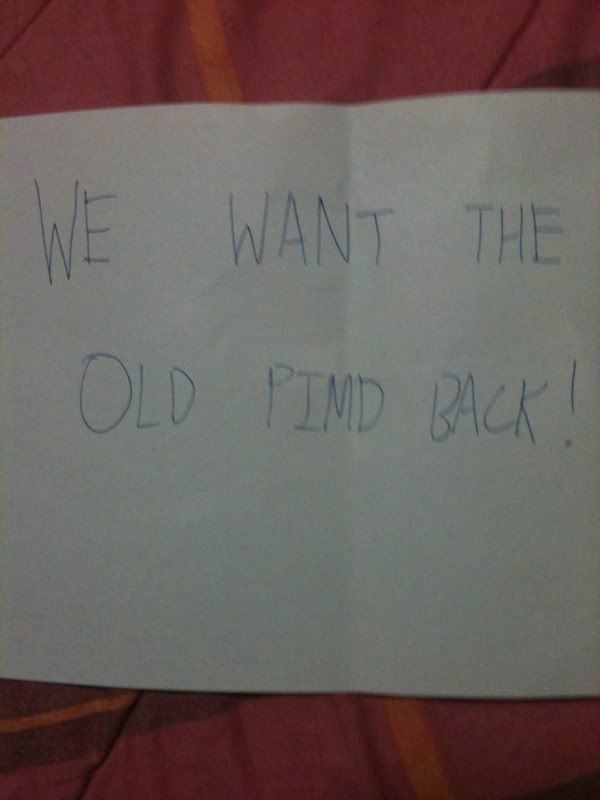 WE WANT THE
OLD PIMD BACK!